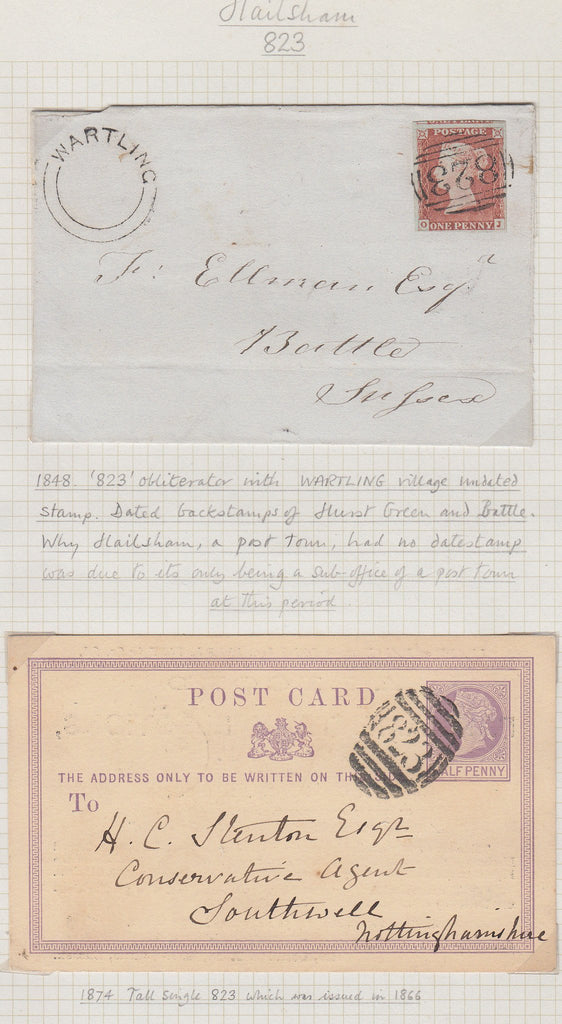 Hailsham
823
WARTLING
POSTAGE
823
ONE PENNY
O J
F: Ellman Esqr
Battle
Sussex
1848. '823' obliterator with WARTLING village undated
stamp. Dated backstamps of Hurst Green and Battle.
Why Hailsham, a post town, had no datestamp
was due to its only being a sub-office of a post town
at this period.
POST CARD
823
THE ADDRESS ONLY TO BE WRITTEN ON TH
HALF PENNY
To
H. C. Stenton Esqre
Conservative Agent
Southwell
Nottinghamshire
1874 Tall Single 823 which was issued in 1866